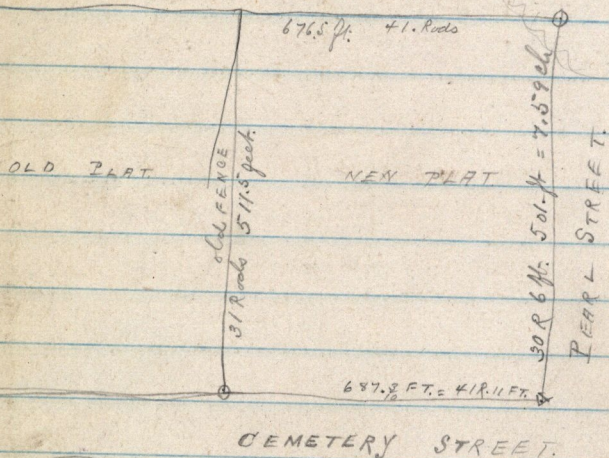 676.5 ft. 41. Rods
OLD PLAT
old FENCE
31 Rods 511.5 feet.
NEW PLAT
30 R 6 ft. 501. ft = 7.59 ch
PEARL STREET.
FT. = 41R. 11 FT.
CEMETERY STREET.